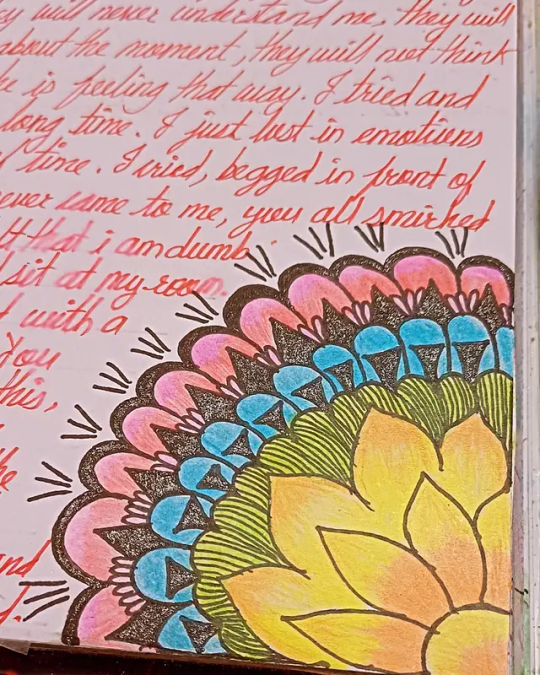 ey will never understand me, they will
about the moment, they will not think
he is feeling that way. I tried and
long time. I just lost in emotions
of time. I tried, begged in front of
ever came to me, you all smirked
that i am dumb.
sit at my room.
with a
You
this,
the
and